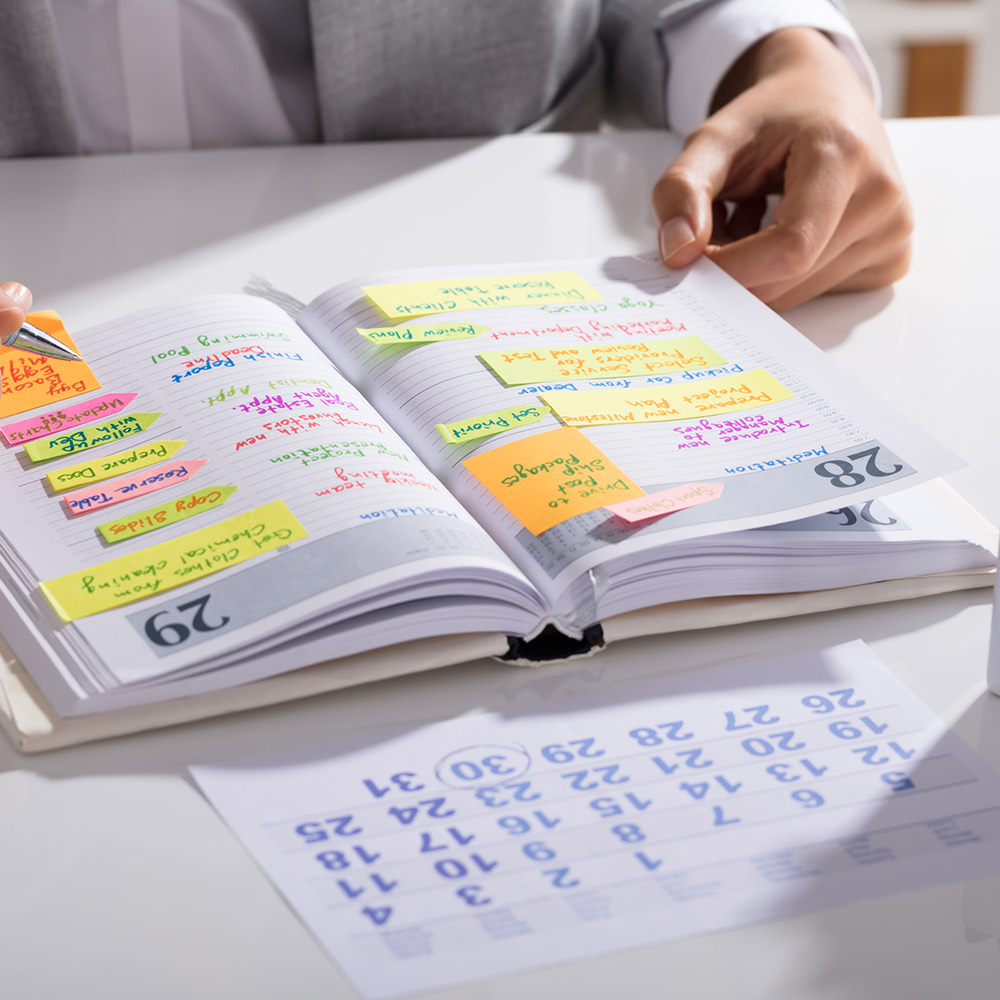 28
Meditation
Introduce new
Manager to
Colleagues
Prepare new Milestone
Project Plan
Pickup car from Dealer
Select Service
Provider for
Review and Test
Department
Yoga Classes
Dinner with Clients
Reserve Table
Set Priorit
Review Plans
Drive to
Post
Ship
Packages
26
29
Meditation
Weekly team
meeting
New Project
Presentation
Lunch with new
Investors
Dentist Appt.
Real Estate
Agent Appt.
Finish Report
Deadline
Swimming Pool
Get Clothes from
Chemical cleaning
Copy Slides
Reserve Table
Prepare Docs
Follow up with Dev
Update Charts
Buy
Bacon
Eggs
1 2 3 4
5 6 7 8 9 10 11
12 13 14 15 16 17 18
19 20 21 22 23 24 25
26 27 28 29 30 31